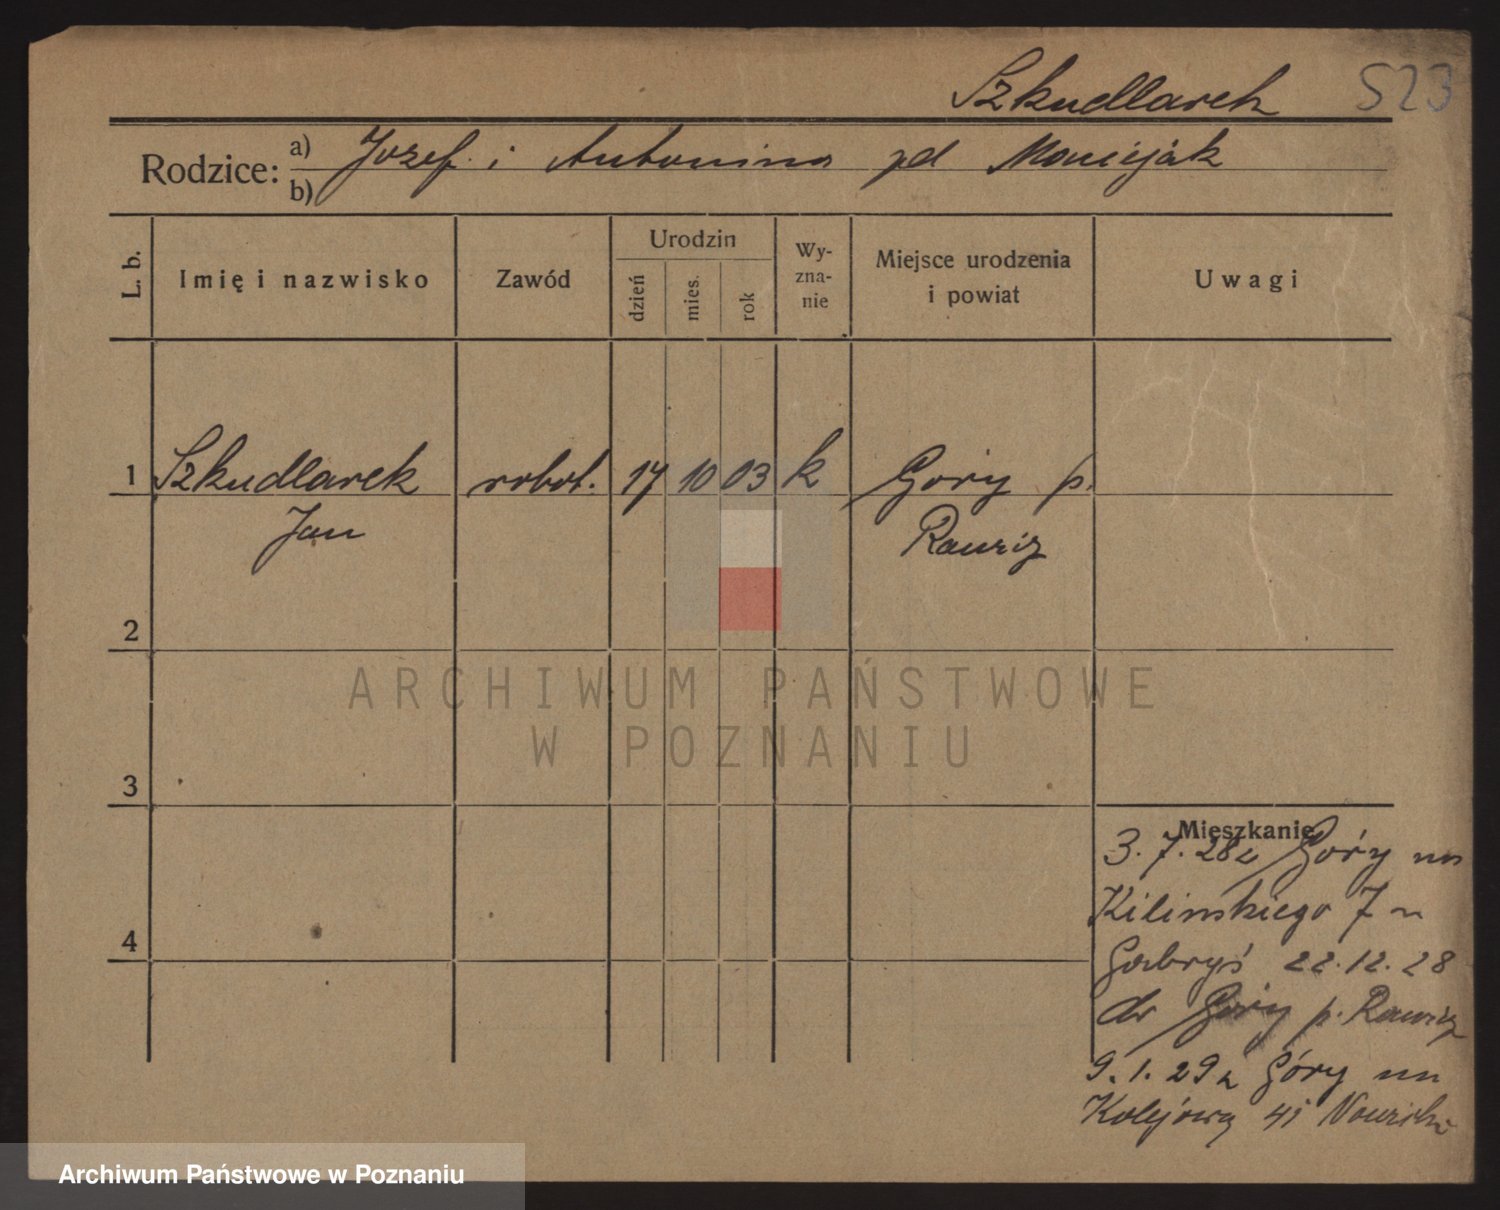 Szkudlarek 523
Rodzice: a) Józef i Antonina zd Maciejak
b)
L. b. Imię i nazwisko Zawód Urodzin dzień mies. rok Wy-zna-nie Miejsce urodzenia i powiat Uwagi
1 Szkudlarek robot. 17 10 03 k Góry p.
Jan Rawicz
2
ARCHIWUM PAŃSTWOWE
W POZNANIU
3
Mieszkanie
3.7.28 z Góry na
Kilińskiego 7 u
Gabryś 22.12.28
do Góry p. Rawicz
9.1.29 z Góry na
Kolejową 41
4
Archiwum Państwowe w Poznaniu